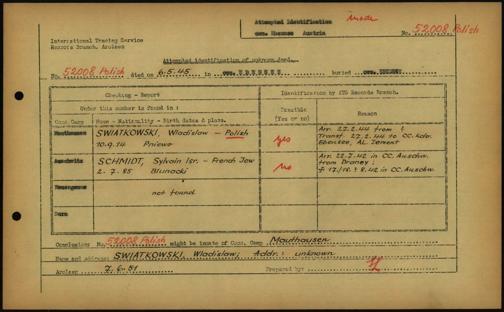 Attempted Identification made
com. Ebensee Austria No. 52008 Polish
International Tracing Service
Records Branch, Arolsen
Attempted identification of unknown dead.
No. 52008 Polish died on 6.5.45 in com. EBENSEE buried com. EBENSEE
Checking - Report
Identification by ITS Records Branch.
Under this number is found in :
Conc. Camp Name - Nationality - Birth dates & place.
Feasible (Yes or no)
Reason
Mauthausen SWIATKOWSKI, Wladislaw - Polish
10.9.14 Pniewo
yes
Arr. 27.2.44 from ?
Transf. 27.2.44 to CC. Kdo.
Ebensee, AL Zement
Auschwitz SCHMIDT, Sylvain Isr. - French Jew
2.7.85
no
Arr. 22.7.42 in CC. Auschw.
from Drancy ;
in CC. Auschw.
Neuengamme not found
Dora
Conclusions No. 52008 Polish might be inmate of Conc. Camp Mauthausen
Name and address: SWIATKOWSKI, Wladislaw; Addr.: unknown
Arolsen 7.6.51 Prepared by: